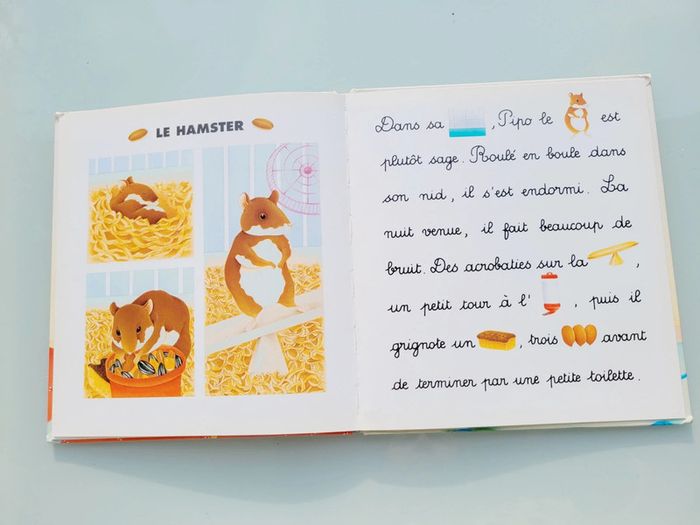 LE HAMSTER
Dans sa , Pipo le est
plutôt sage. Roulé en boule dans
son nid, il s'est endormi. La
nuit venue, il fait beaucoup de
bruit. Des acrobaties sur la ,
un petit tour à l' , puis il
grignote un , trois avant
de terminer par une petite toilette.